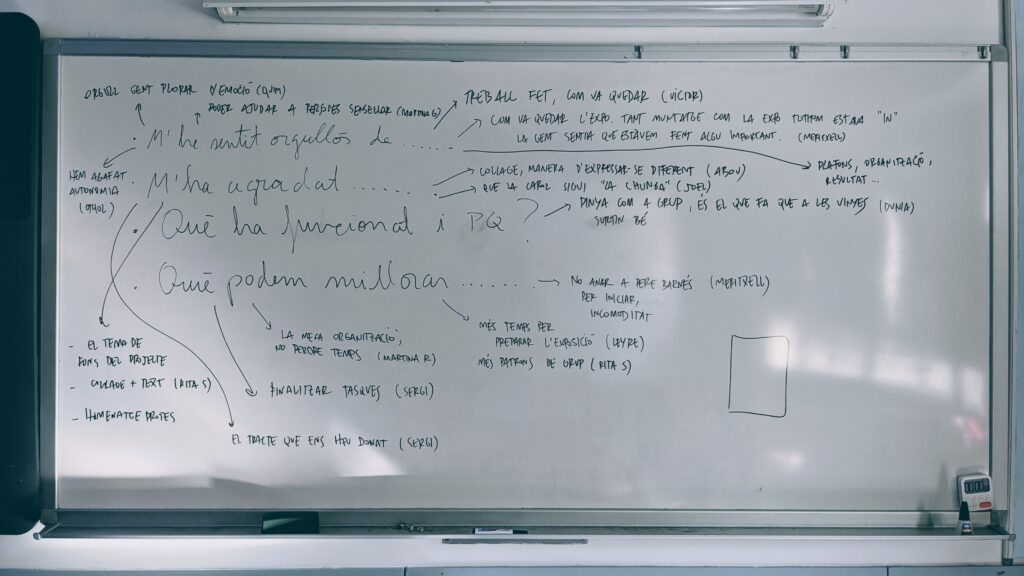 ORGULL GENT PLORAR D'EMOCIÓ (QUIM)
PODER AJUDAR A PERSONES SENSELLAR (MARTINA G)
TREBALL FET, COM VA QUEDAR (VÍCTOR)
COM VA QUEDAR L'EXPO. TANT MUNTATGE COM LA EXPO TOTHOM ESTAVA "IN"
LA GENT SENTIA QUE ESTÀVEM FENT ALGU IMPORTANT. (MERITXELL)
· M'he sentit orgullós de ......
PLAFONS, ORGANITZACIÓ,
RESULTAT...
HEM AGAFAT
AUTONOMIA
· M'ha agradat ......
COLLAGE, MANERA D'EXPRESSAR-SE DIFERENT (ABOU)
QUE LA CAROL SIGUI "LA CHUNGA" (JOEL)
· Què ha funcionat i PQ?
PINYA COM A GRUP, ÉS EL QUE FA QUE A LES VINYES (DUNIA)
SURTIN BÉ
· Què podem millorar .......
NO ANAR A PERE BARNÉS (MERITXELL)
PER INICIAR,
INCOMODITAT
LA MEVA ORGANITZACIÓ,
NO PERDRE TEMPS (MARTINA R)
MÉS TEMPS PER
PREPARAR L'EXPOSICIÓ (LEYRE)
MÉS PATRONS DE GRUP (RITA S)
- EL TEMA DE
FONS DEL PROJECTE
- COLLAGE + TEXT (RITA S)
- HOMENATGE
FINALITZAR TASQUES (SERGI)
EL TRACTE QUE ENS HEU DONAT (SERGI)